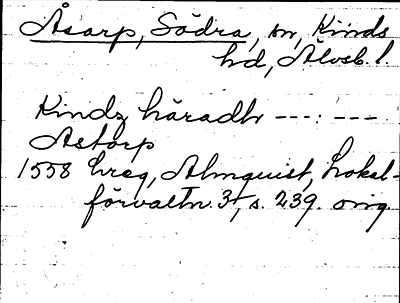 Åsarp, Södra, sn, Kinds
hd, Älvsb. l.
Kindz häradh ---:---
Astorp
1558 hreg, Almquist, Lokal-
förvaltn. 3, s. 239. orig